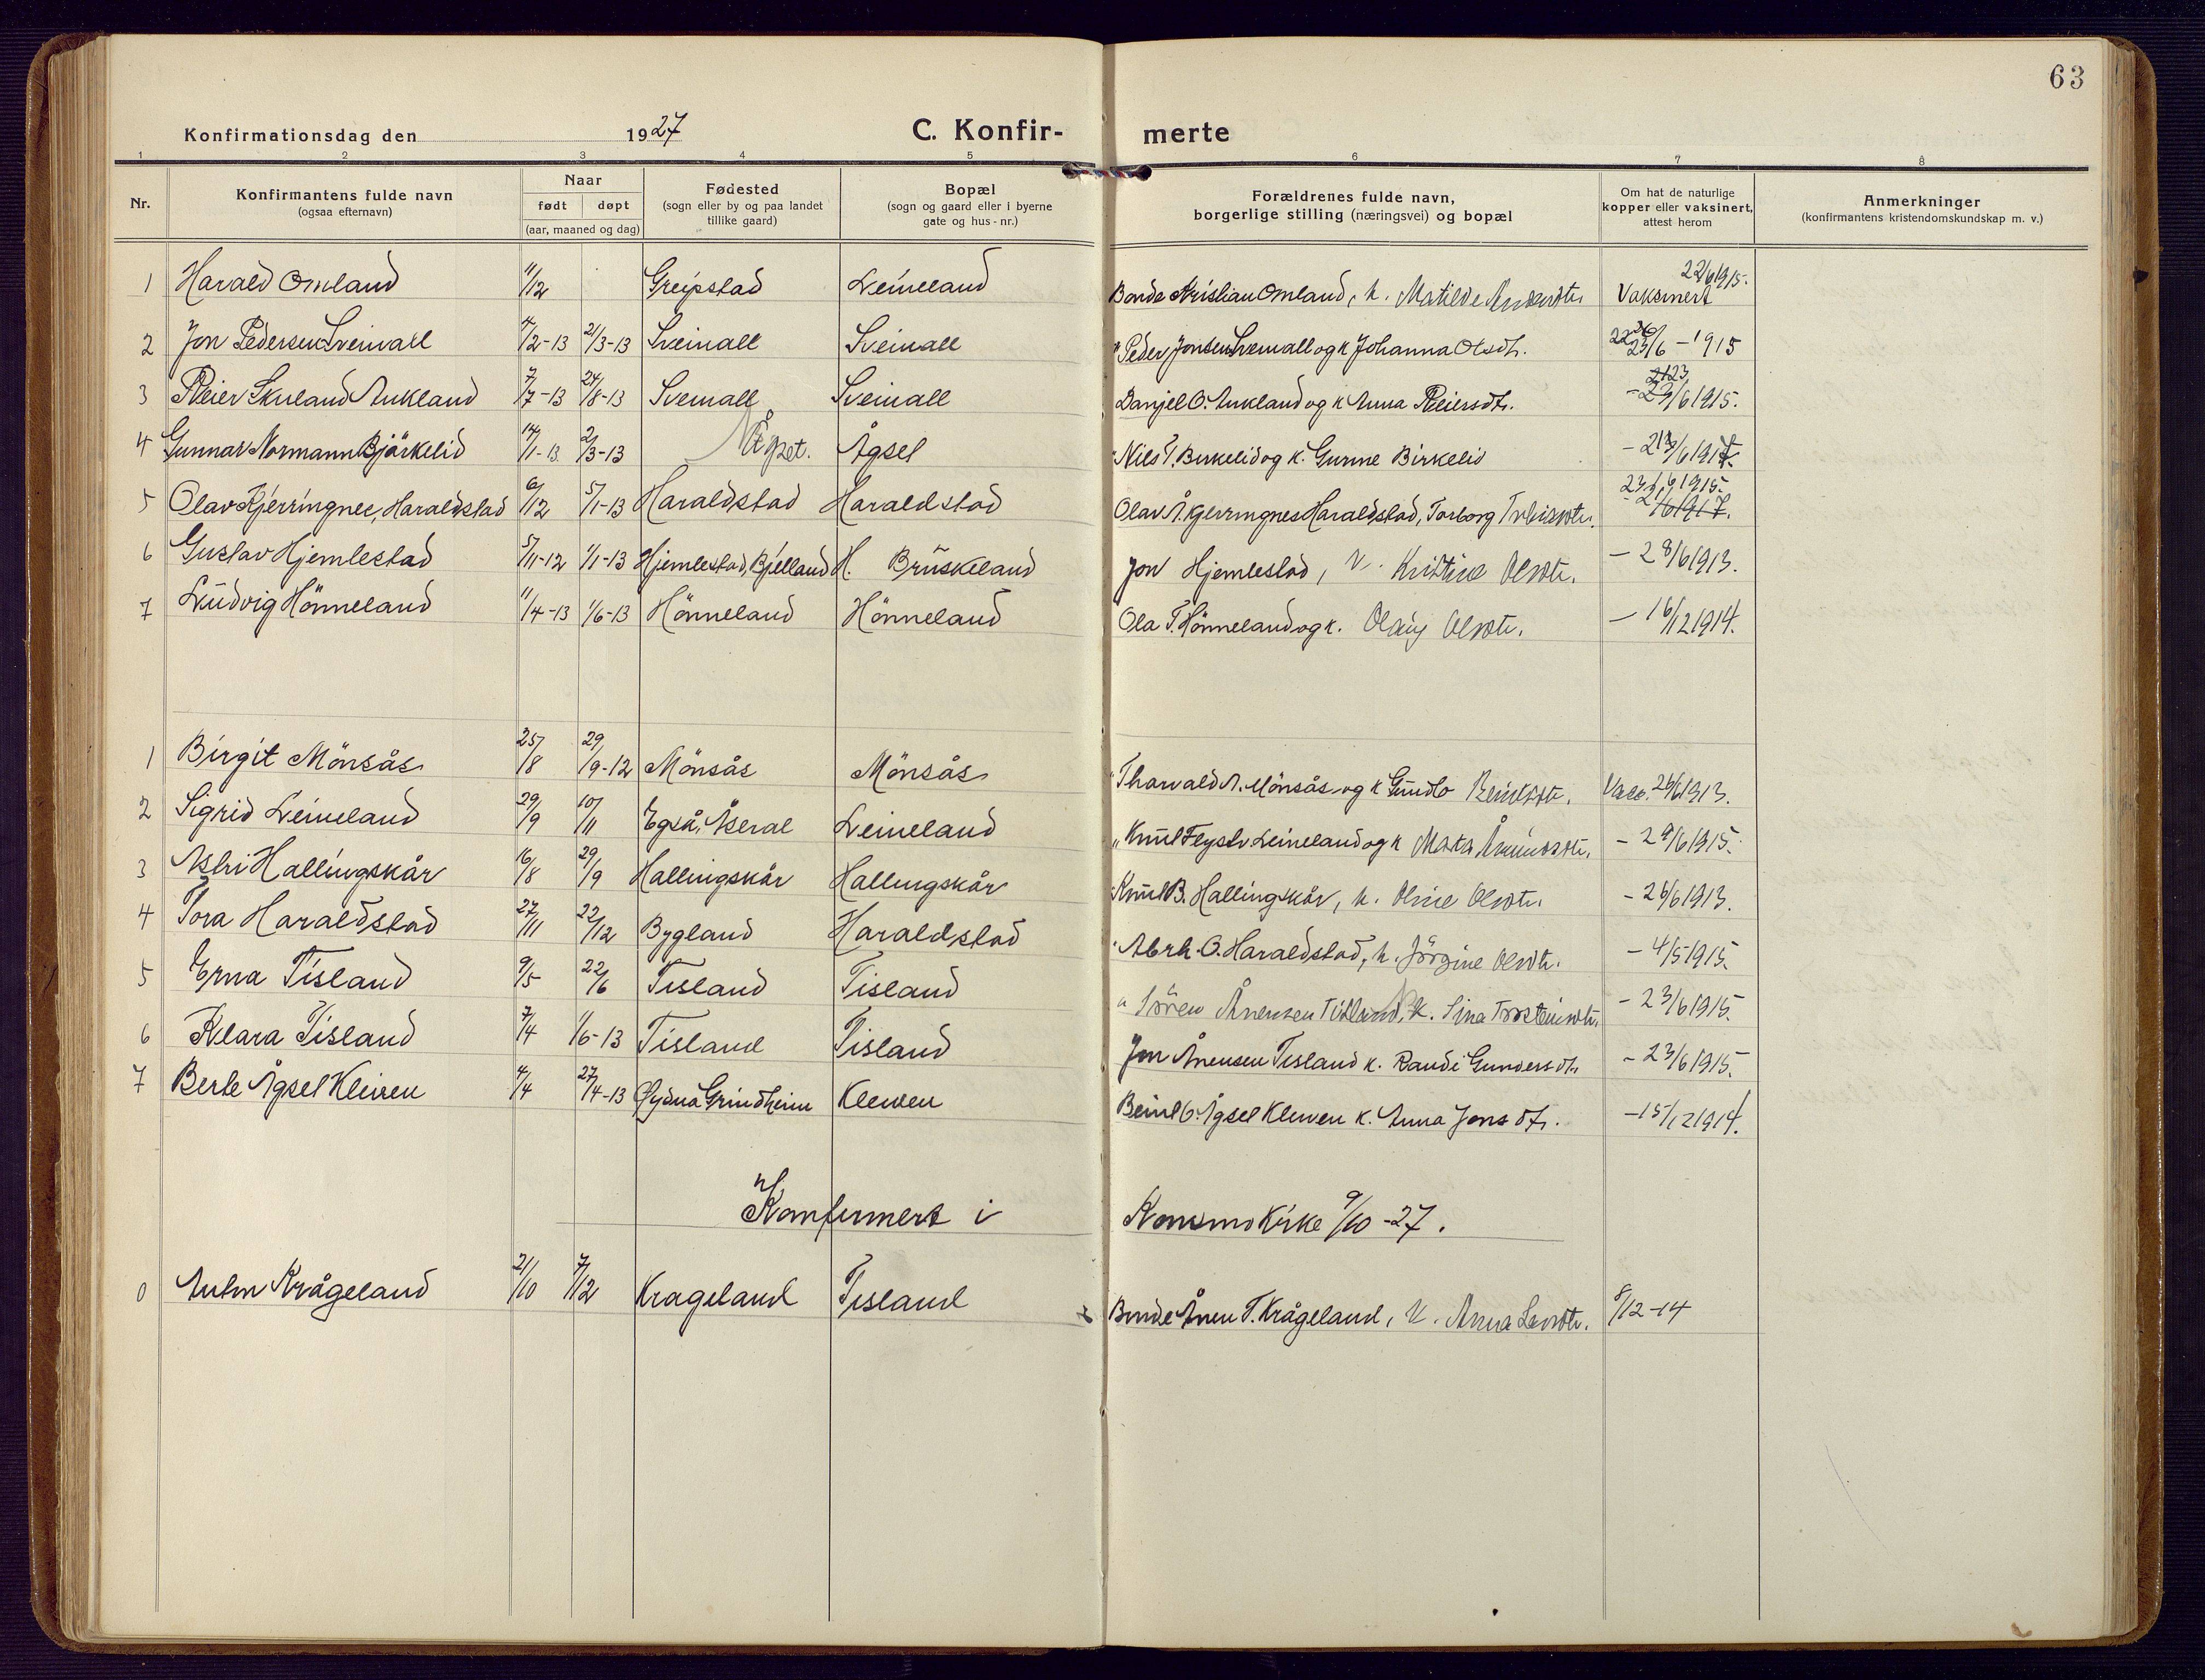 63
Konfirmationsdag den 1927 C. Konfir- merte
1 2 3 4 5 6 7 8
Nr. Konfirmantens fulde navn (ogsaa efternavn) Naar født døpt (aar, maaned og dag) Fødested (sogn eller by og paa landet tillike gaard) Bopæl (sogn og gaard eller i byerne gate og hus-nr.) Forældrenes fulde navn, borgerlige stilling (næringsvei) og bopæl Om hat de naturlige kopper eller vaksinert, attest herom Anmerkninger (konfirmantens kristendomskundskap m. v.)
1 Harald Omland 11/12 Greipstad Leineland Bonde Kristian Omland, k. Matilde Vaksinert 22/6 1915.
2 Jon Pedersen Sveinall 4/2-13 21/3-13 Sveinall Sveinall " Peder Jonsen Sveinall og k Johanna Olsdtr. 23/6 - 1915
3 Reier Skuland Aukland 7/7-13 24/8-13 Sveinall Sveinall Danjel O. Aukland og k Anna Reiersdtr. - 23/6 1915.
4 Gunnar Normann Bjärkelid 14/1-13 2/3-13 Ågsel Nils T. Birkelid og k. Gurine Birkelid
5 Olav Kjerringnes, Haraldstad 6/12 5/1-13 Haraldstad Haraldstad Olav Å. Kjerringnes Haraldstad, Torborg 23/6 1915.
6 Gustav Hjemlestad 5/11-12 1/1-13 Hjemlestad, Bjelland H. Brüskeland Jon Hjemlestad, k. Kristine Olsdtr. - 28/6 1913.
7 Ludvig Hönneland 11/4-13 1/6-13 Hönneland Hönneland Ola T. Hönneland og k. Olaug Olsdtr. - 16/12 1914.
1 Birgit Mönsås 25/8 29/9-12 Mönsås Mönsås " Thorvald A. Mönsås og k Gundto Vacc. 26/6 1913.
2 Sigrid Leineland 29/9 10/11 Egså, Åseral Leineland " Knut Leineland og k - 29/6 1915.
3 Astri Hallingskår 16/8 29/9 Hallingskår Hallingskår " Knut B. Hallingskår, k. Oline Olsdtr. - 26/6 1913.
4 Tora Haraldstad 27/11 22/12 Bygland Haraldstad " Abrh. O. Haraldstad, k. Jörgine Olsdtr. - 4/5 1915.
5 Erna Tisland 9/5 22/6 Tisland Tisland " Sören Ånensen Tisland, k. Sina Torsteinsdtr. - 23/6 1915.
6 Klara Tisland 7/4 1/6-13 Tisland Tisland Jon Ånensen Tisland k. Randi Gundersdtr. - 23/6 1915.
7 Berte Ågsel Kleiven 4/4 27/4-13 Öydna Grindheim Kleiven Beint O. Ågsel Kleiven k. Anna Jonsdtr. - 15/12 1914.
Konfirmert i Konsmo Kirke 9/10-27.
0 Anton Krågeland 21/10 7/12 Krageland Tisland Bonde Ånen T. Krågeland, k. Anna Larsdtr. 8/12-14